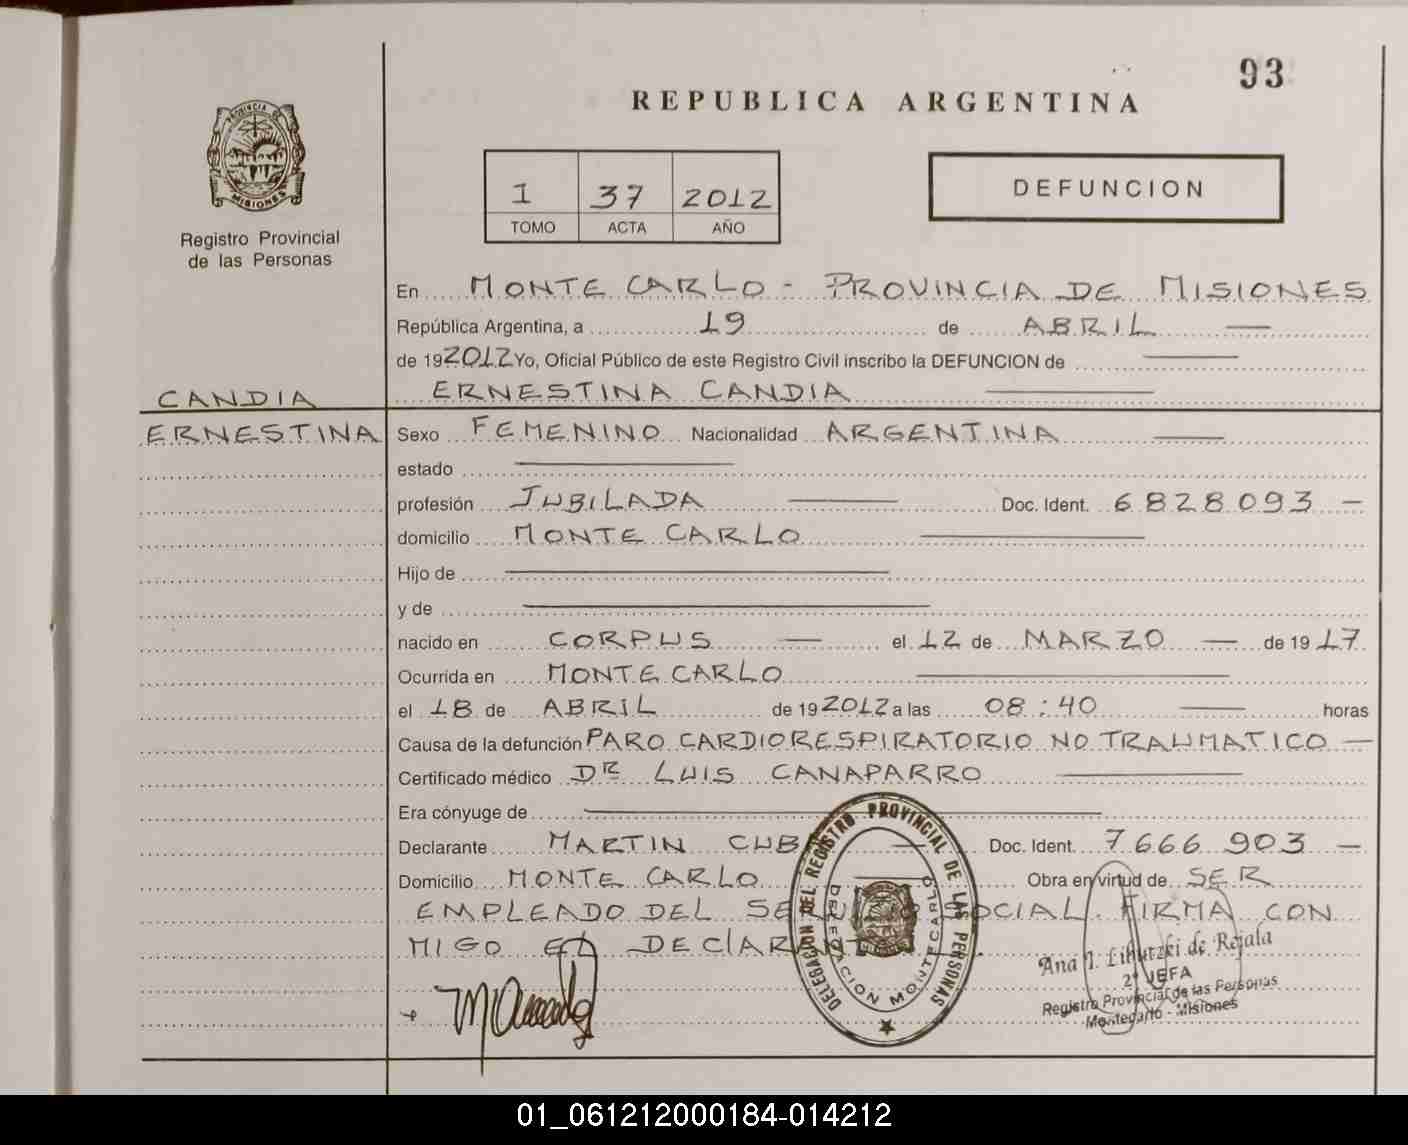 93
REPUBLICA ARGENTINA
PROVINCIA DE
MISIONES
Registro Provincial
de las Personas
1 37 2012
TOMO ACTA AÑO
DEFUNCION
En MONTE CARLO - PROVINCIA DE MISIONES
República Argentina, a 19 de ABRIL
de 192012 Yo, Oficial Público de este Registro Civil inscribo la DEFUNCION de
CANDIA ERNESTINA CANDIA
ERNESTINA Sexo FEMENINO Nacionalidad ARGENTINA
estado
profesión JUBILADA Doc. Ident. 6828093 -
domicilio MONTE CARLO
Hijo de
y de
nacido en CORPUS el 12 de MARZO de 19 17
Ocurrida en MONTE CARLO
el 18 de ABRIL de 192012 a las 08:40 horas
Causa de la defunción PARO CARDIORESPIRATORIO NO TRAUMATICO -
Certificado médico DR LUIS CANAPARRO
Era cónyuge de
Declarante MARTIN Doc. Ident. 7666903 -
Domicilio MONTE CARLO Obra en virtud de SER
EMPLEADO DEL SOCIAL. FIRMA CON
MIGO EL
DELEGACION DEL REGISTRO PROVINCIAL DE LAS PERSONAS
DELEGACION MONTECARLO
Ana de Rejala
2º JEFA
Registro Provincial de las Personas
Montecarlo - Misiones
01_061212000184-014212